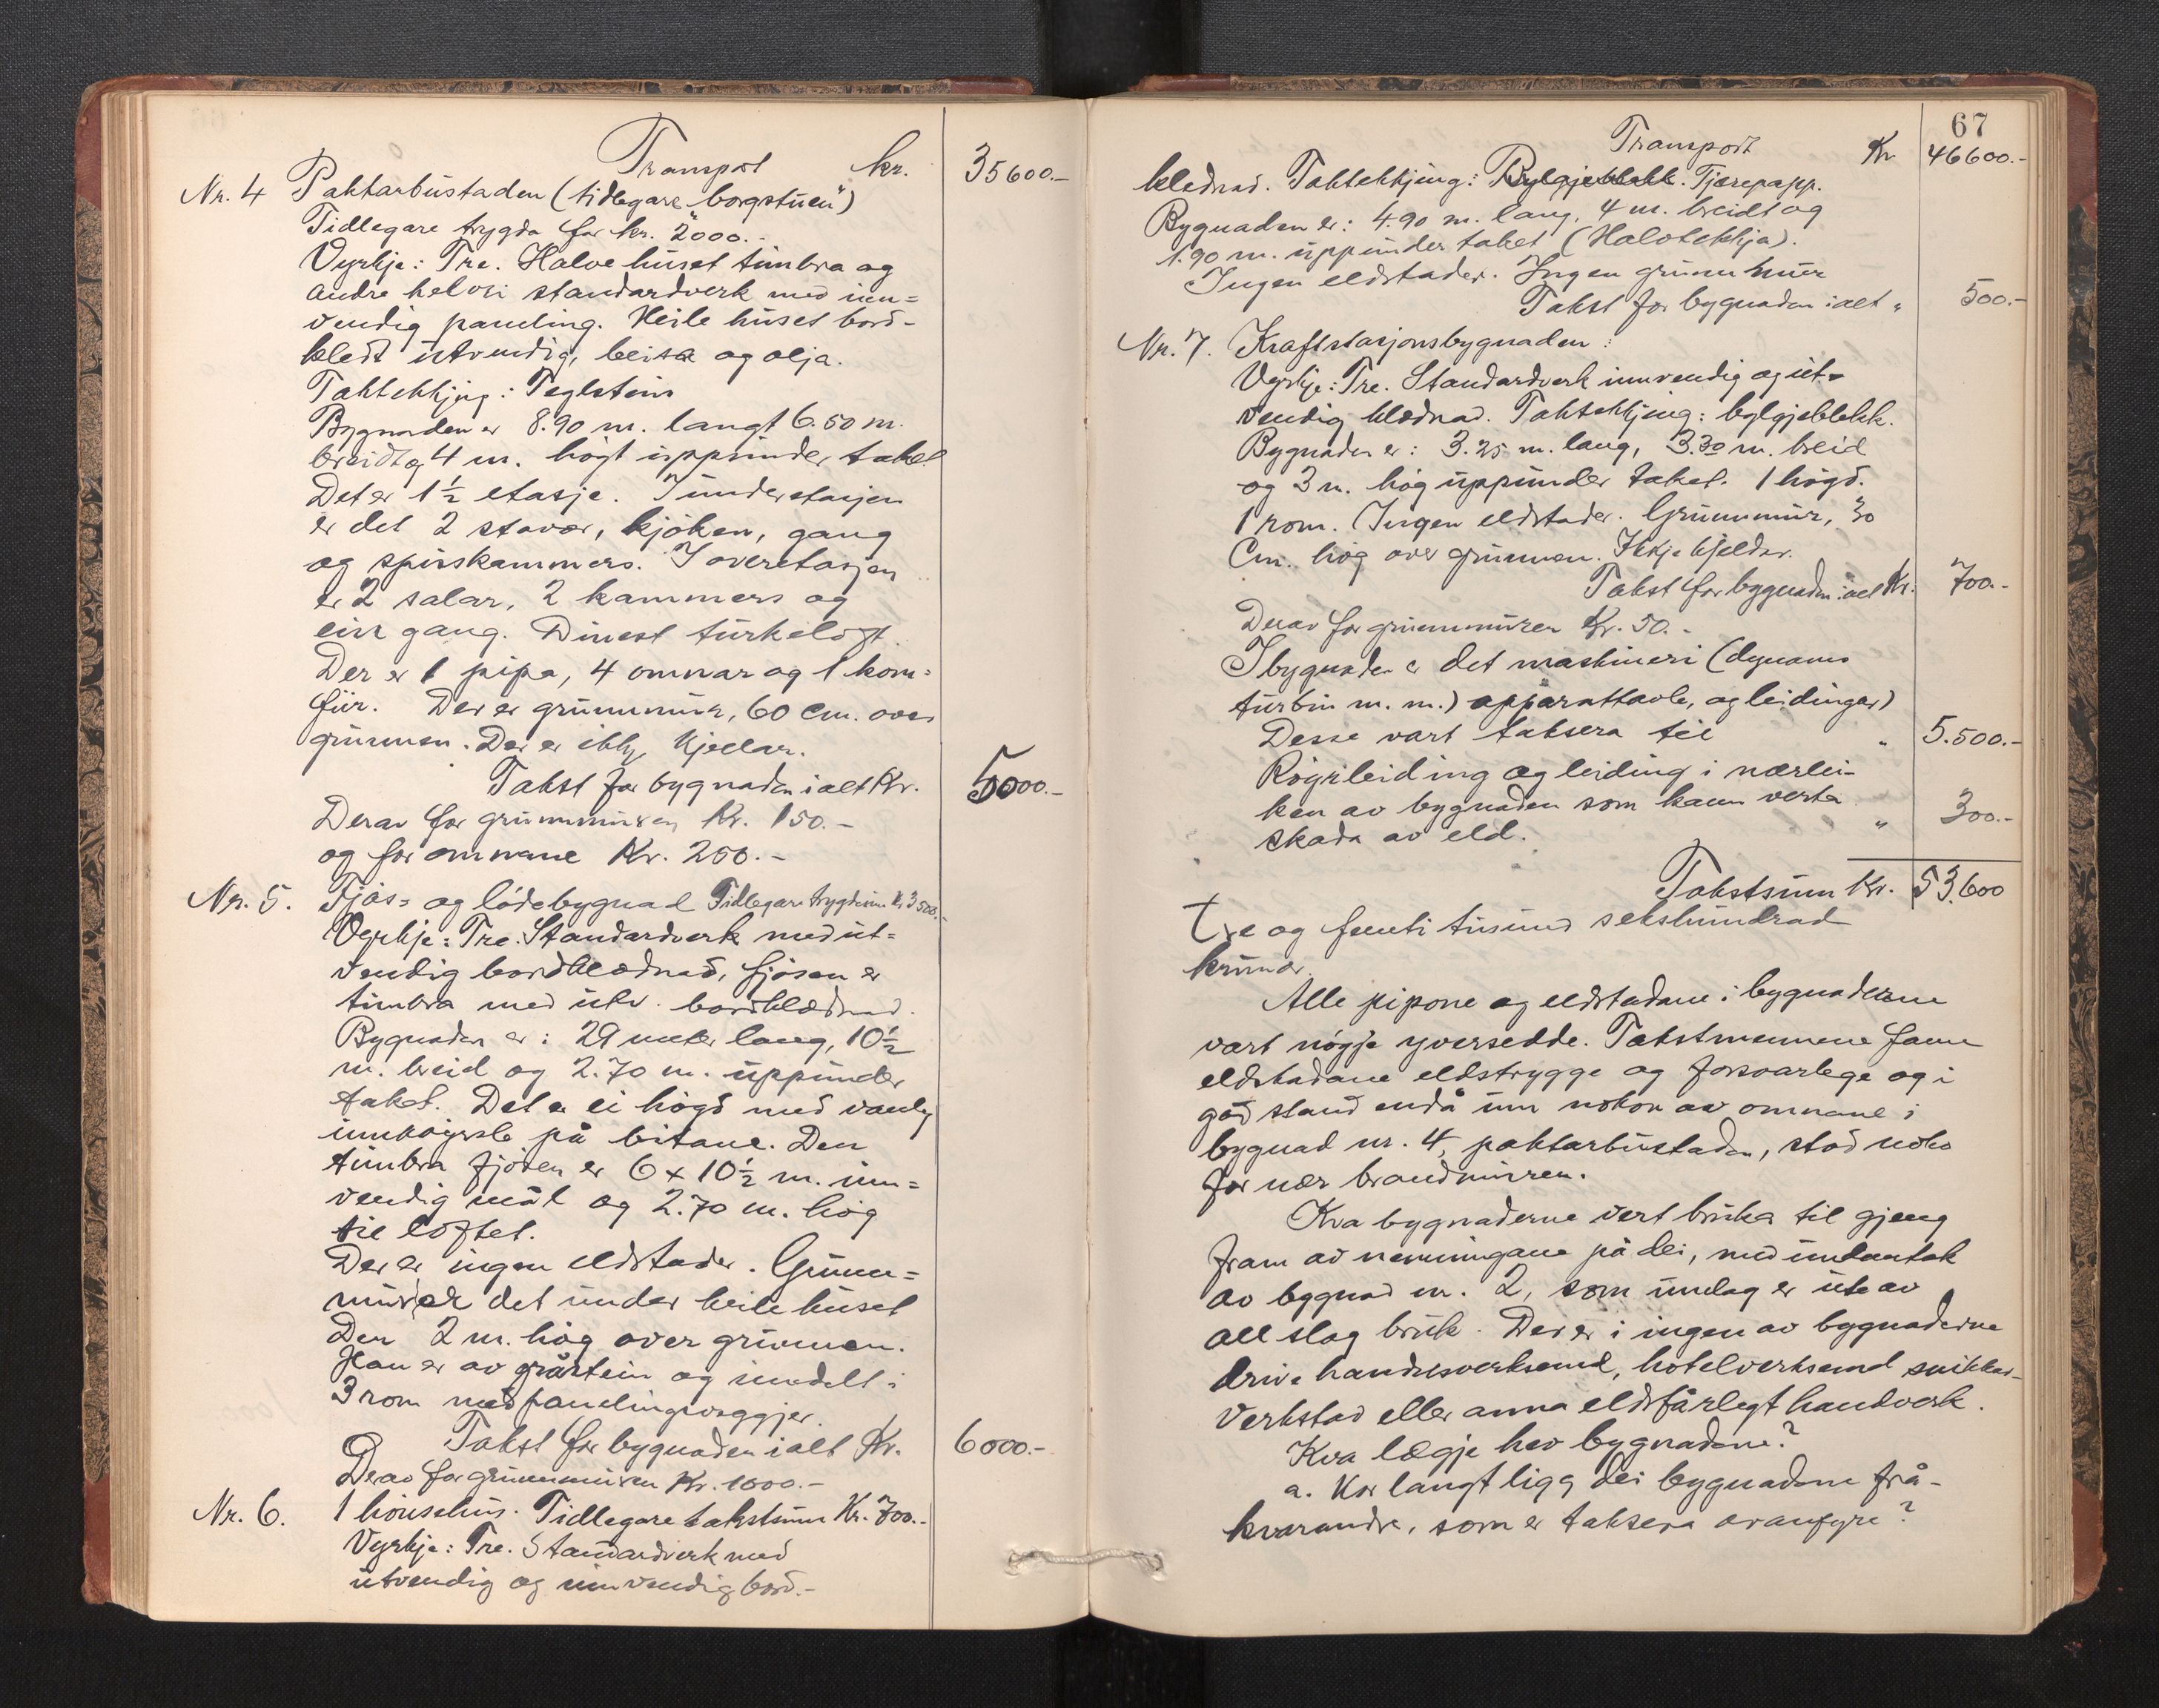 Transport kr. 35600.-
Nr. 4 Paktarbustaden (tidlegare "borgstuen")
Tidlegare trygda for kr. 2000.-
Vyrkje: Tre. Halve huset timbra og
andre helvti standardverk med inn=
vendig paneling. Heile huset bord-
kledt utvendig, beisa og olja.
Taktekkjing: Teglstein
Bygnaden er 8.90 m. langt 6.50 m.
breidt og 4 m. høgt uppunder taket
Det er 1½ etasje. I understasjen
er det 2 stovor, kjøken, gang
og spiskammers. I overetasjen
er 2 salar, 2 kammers og
ein gang. Dinest turkeloft.
Der er 1 pipa, 4 omnar og 1 kom=
fur. Der er grunnmur, 60 cm. over
grunnen. Der er ikkje kjellar.
Takst for bygnaden i alt Kr. 5000.-
Derav for grunnmuren Kr. 150.-
og for omnane Kr. 200.-
Nr. 5. Fjøs= og lødebygnad Tidlegare trygdesum Kr 3500.-
Vyrkje: Tre. Standardverk med ut=
vendig bordklædnad, fjøsen er
timbra med utv. bordklædnad.
Bygnaden er: 29 meter lang, 10½
m. breid og 2.70 m. uppunder
taket. Det er ei høgd med vanleg
innkøyrsle på bitane. Den
timbra fjøsen er 6 x 10½ m. inn=
vendig mål og 2.70 m. høg
til loftet.
Der er ingen eldstader. Grunn=
mur er det under heile huset
Den 2 m. høg over grunnen.
Han er av gråstein og inndelt i
3 rom med panelingsveggjer.
Takst for bygnaden i alt Kr. 6000.-
Derav for grunnmuren Kr. 1000.-
Nr. 6. 1 hønsehus. Tidlegare takstsum Kr. 700.-
Vyrkje: Tre. Standardverk med
utvendig og innvendig bord.-
67
Transport Kr 46600.-
klednad. Taktekkjing: Bylgjeblekk. Tjærepapp.
Bygnaden er: 4.90 m. lang, 4 m. breidt og
1.90 m. uppunder taket (Halvtekkja).
Ingen eldstader. Ingen grunnmur
Takst for bygnaden i alt " 500.-
Nr. 7. Kraftstasjonsbygnaden:
Vyrkje: Tre. Standardverk innvendig og ut=
vendig klædnad. Taktekkjing: bylgjeblekk.
Bygnaden er: 3.25 m. lang, 3.30 m. breid
og 3 m. høg uppunder taket. 1 høgd.
1 rom. Ingen eldstader. Grunnmur, 30
Cm. høg over grunnen. Ikkje kjelder.
Takst for bygnaden i alt Kr. 700.-
Derav for grunnmuren Kr. 50.-
I bygnaden er det maskineri (dynamo
turbin m. m.) apparattavle, og leidingar)
Desse vart taksera til " 5.500.-
Røyrleiding og leiding i nærlei-
ken av bygnaden som kann verta
skada av eld. " 300.-
Takstsum Kr. 53.600
Tre og femti tusund sekshundrad
krunor.
Alle pipone og eldstadane i bygnaderne
vart nøgje yversedde. Takstmennene fann
eldstadane eldstrygge og forsvarlege og i
god stand endå um nokon av omnane i
bygnad nr. 4, paktarbustaden, stod noko
for nær brandmuren.
Kva bygnaderne vert bruka til gjeng
fram av nemningane på dei, med undantak
av bygnad nr. 2, som undag er ute av
all slag bruk. Der er i ingen av bygnaderne
drive handelsverksemd, hotelverksemd snikkar-
verkstad eller anna eldsfårlegt handverk.
Kva lægje hev bygnadene?
a. Kor langt ligg dei bygnadene frå-
kvarandre, som er taksera ovanfyre?